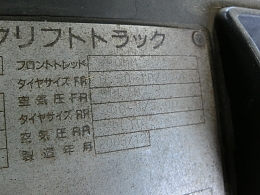 クリフトトラック
フロントトレッド
タイヤサイズ FR
空気圧 FR
タイヤサイズ RR
空気圧 RR
製造年月